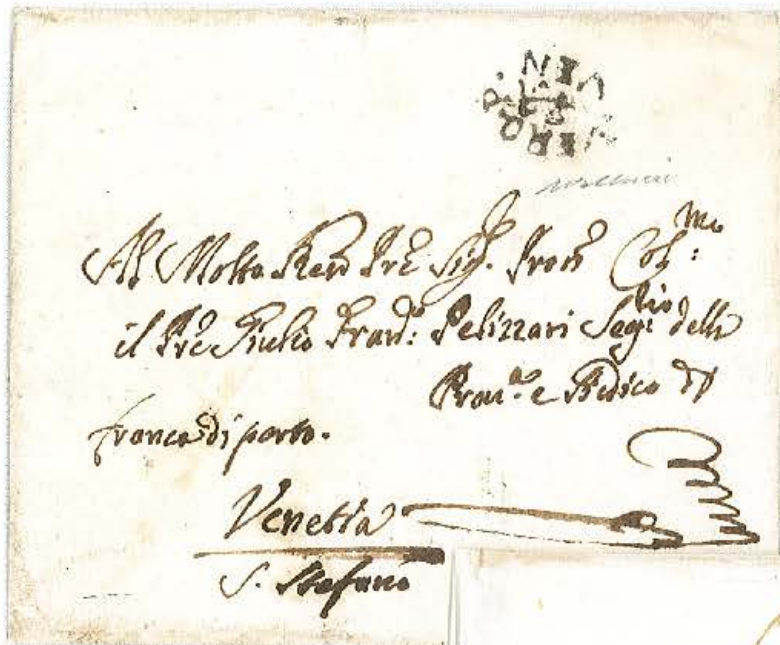 Al Molto Ren Pre Sig. Pron Col:mo
il Pre Giulio Fran: Pelizzari Seg:rio della
Prou:a e
franco di porto.
Venetia
S. Stefano